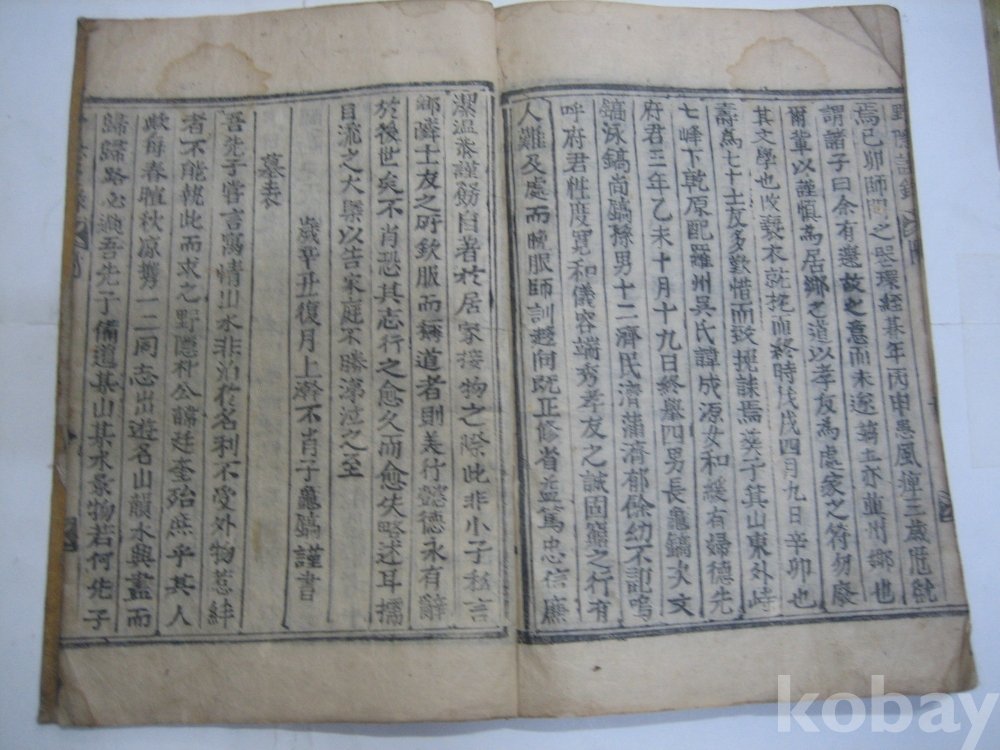 焉已卯師門之琹環經朞年丙申患風痺三歲
謂諸子曰余有遷之意而未遂葬土亦並州鄕也
爾輩以謹愼爲居鄕之道以孝友爲處家之符勿廢
其文學也改褻衣就枕而終時戊戌四月九日辛卯也
壽爲七十士友多歎惜而致挽誄焉葬于其山東外峙
七峰下乾原配羅州吳氏諱成源女和緩有婦德先
府君三年乙未十月十九日終擧四男長龜鎬次文
鎬泳鎬尙鎬孫男十二濟民濟蒲濟郁餘幼不記嗚
呼府君性度寬和儀容端秀孝友之誠固窮之行有
人難及處而晩服師訓趍向旣正修省益篤忠信廉
潔温恭謹勑自著於居家接物之際此非小子私言
鄕隣士友之所欽服而稱道者則美行懿德永有辭
於後世矣不肖恐其志行之愈久而愈失略述耳擩
目流之大槩以告家庭不勝涕泣之至
歲辛丑復月上澣不肖子龜鎬謹書
墓表
吾先子嘗言寓情山水非泊於名利不受外物惹絆
者不能就此而求之野隱朴公諱廷奎殆庶乎其人
歟每春暄秋凉携一二同志出遊名山韻水興盡而
歸歸路必過吾先子備道某山某水景物若何先子
kobay